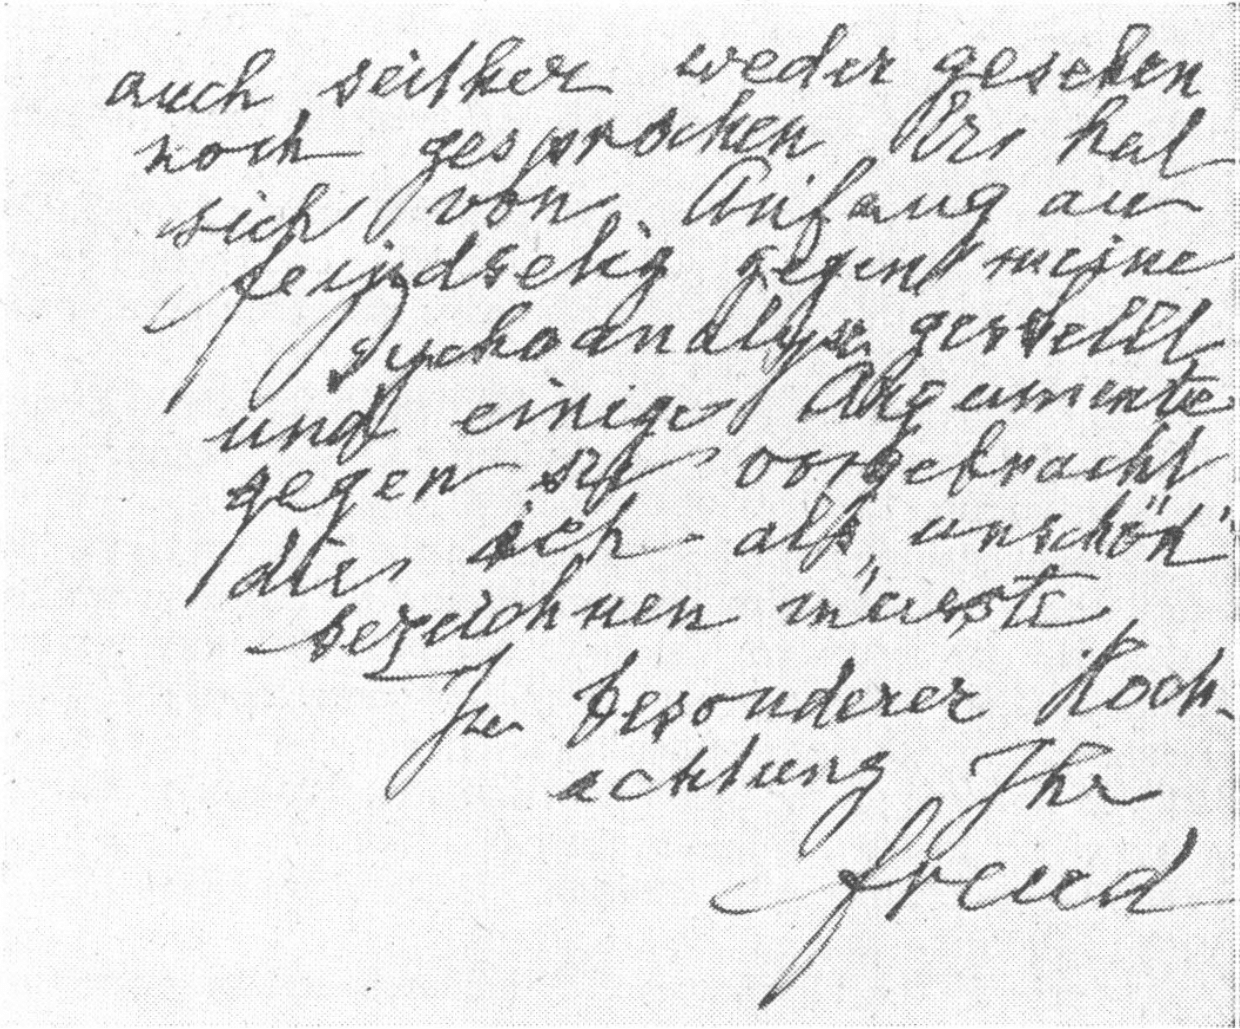 auch seither weder gesehen
noch gesprochen Er hat
sich von Anfang an
feindselig gegen meine
Psychoanalyse gestellt
und einige Argumente
gegen sie vorgebracht
die ich als „unschön“
bezeichnen müsste
In besonderer Hoch-
achtung Ihr
Freud